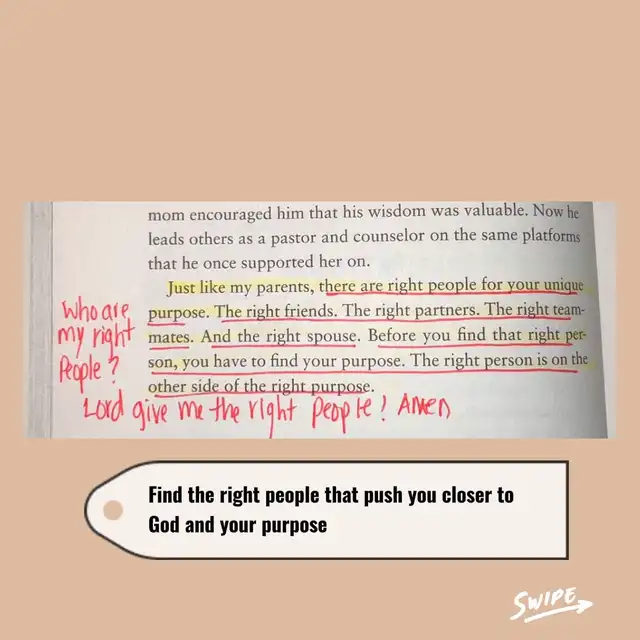 mom encouraged him that his wisdom was valuable. Now he
leads others as a pastor and counselor on the same platforms
that he once supported her on.
Just like my parents, there are right people for your unique
purpose. The right friends. The right partners. The right team-
mates. And the right spouse. Before you find that right per-
son, you have to find your purpose. The right person is on the
other side of the right purpose.
Who are
my right
People?
Lord give me the right People! Amen
Find the right people that push you closer to
God and your purpose
SWIPE